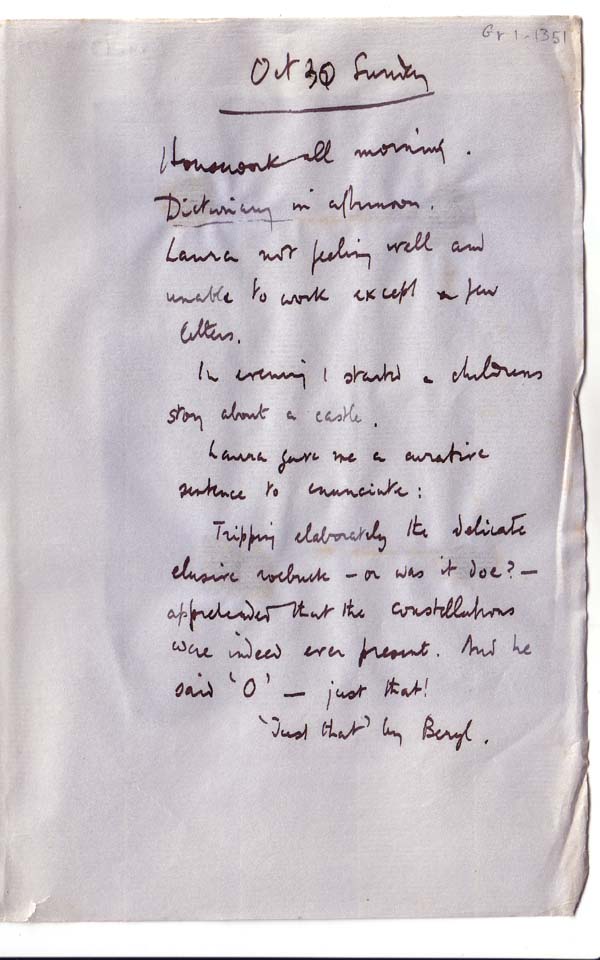 Gr 1-1351
Oct 30 Sunday
Housework all morning.
Dictionary in afternoon.
Laura not feeling well and
unable to work except a few
letters.
In evening I started a childrens
story about a castle.
Laura gave me a curative
sentence to enunciate:
Tripping elaborately the delicate
elusive roebuck – or was it doe? –
apprehended that the constellations
were indeed ever present. And he
said 'O' – just that!
'Just that' by Beryl.